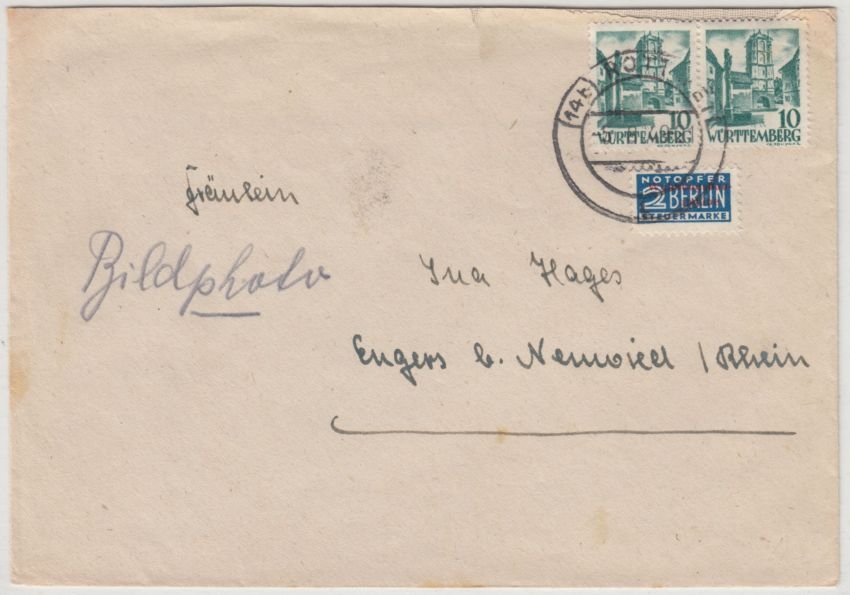 10
WÜRTTEMBERG
10
WÜRTTEMBERG
(14b)
NOTOPFER
2 BERLIN
STEUERMARKE
Fräulein
Bildphoto
Ina Hages
Engers b. Neuwied / Rhein